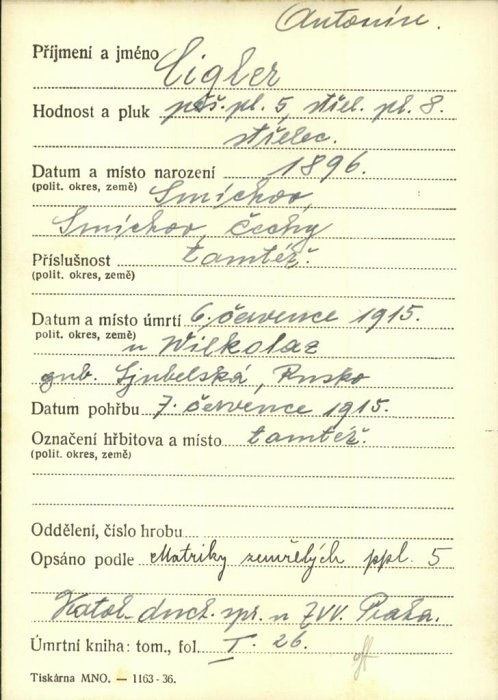 Antonín.
Příjmení a jméno Cigler
Hodnost a pluk pěš. pl. 5, střel. pl. 8.
střelec.
Datum a místo narození 1896.
(polit. okres, země) Smíchov,
Smíchov, Čechy
Příslušnost tamtéž.
(polit. okres, země)
Datum a místo úmrtí 6. července 1915.
polit. okres, země) u Wilkolaz
gub. Ljubelská, Rusko
Datum pohřbu 7. července 1915.
Označení hřbitova a místo tamtéž.
(polit. okres, země)
Oddělení, číslo hrobu
Opsáno podle Matriky zemřelých ppl. 5
Katol. duch. spr. u ZVV. Praha.
Úmrtní kniha: tom., fol. I. 26.
Tiskárna MNO. — 1163-36.